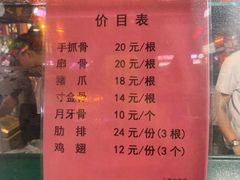 价目表
手抓骨 20元/根
廍骨 20元/根
猪爪 18元/根
寸金骨 14元/根
月牙骨 10元/个
肋排 24元/份(3根)
鸡翅 12元/份(3个)